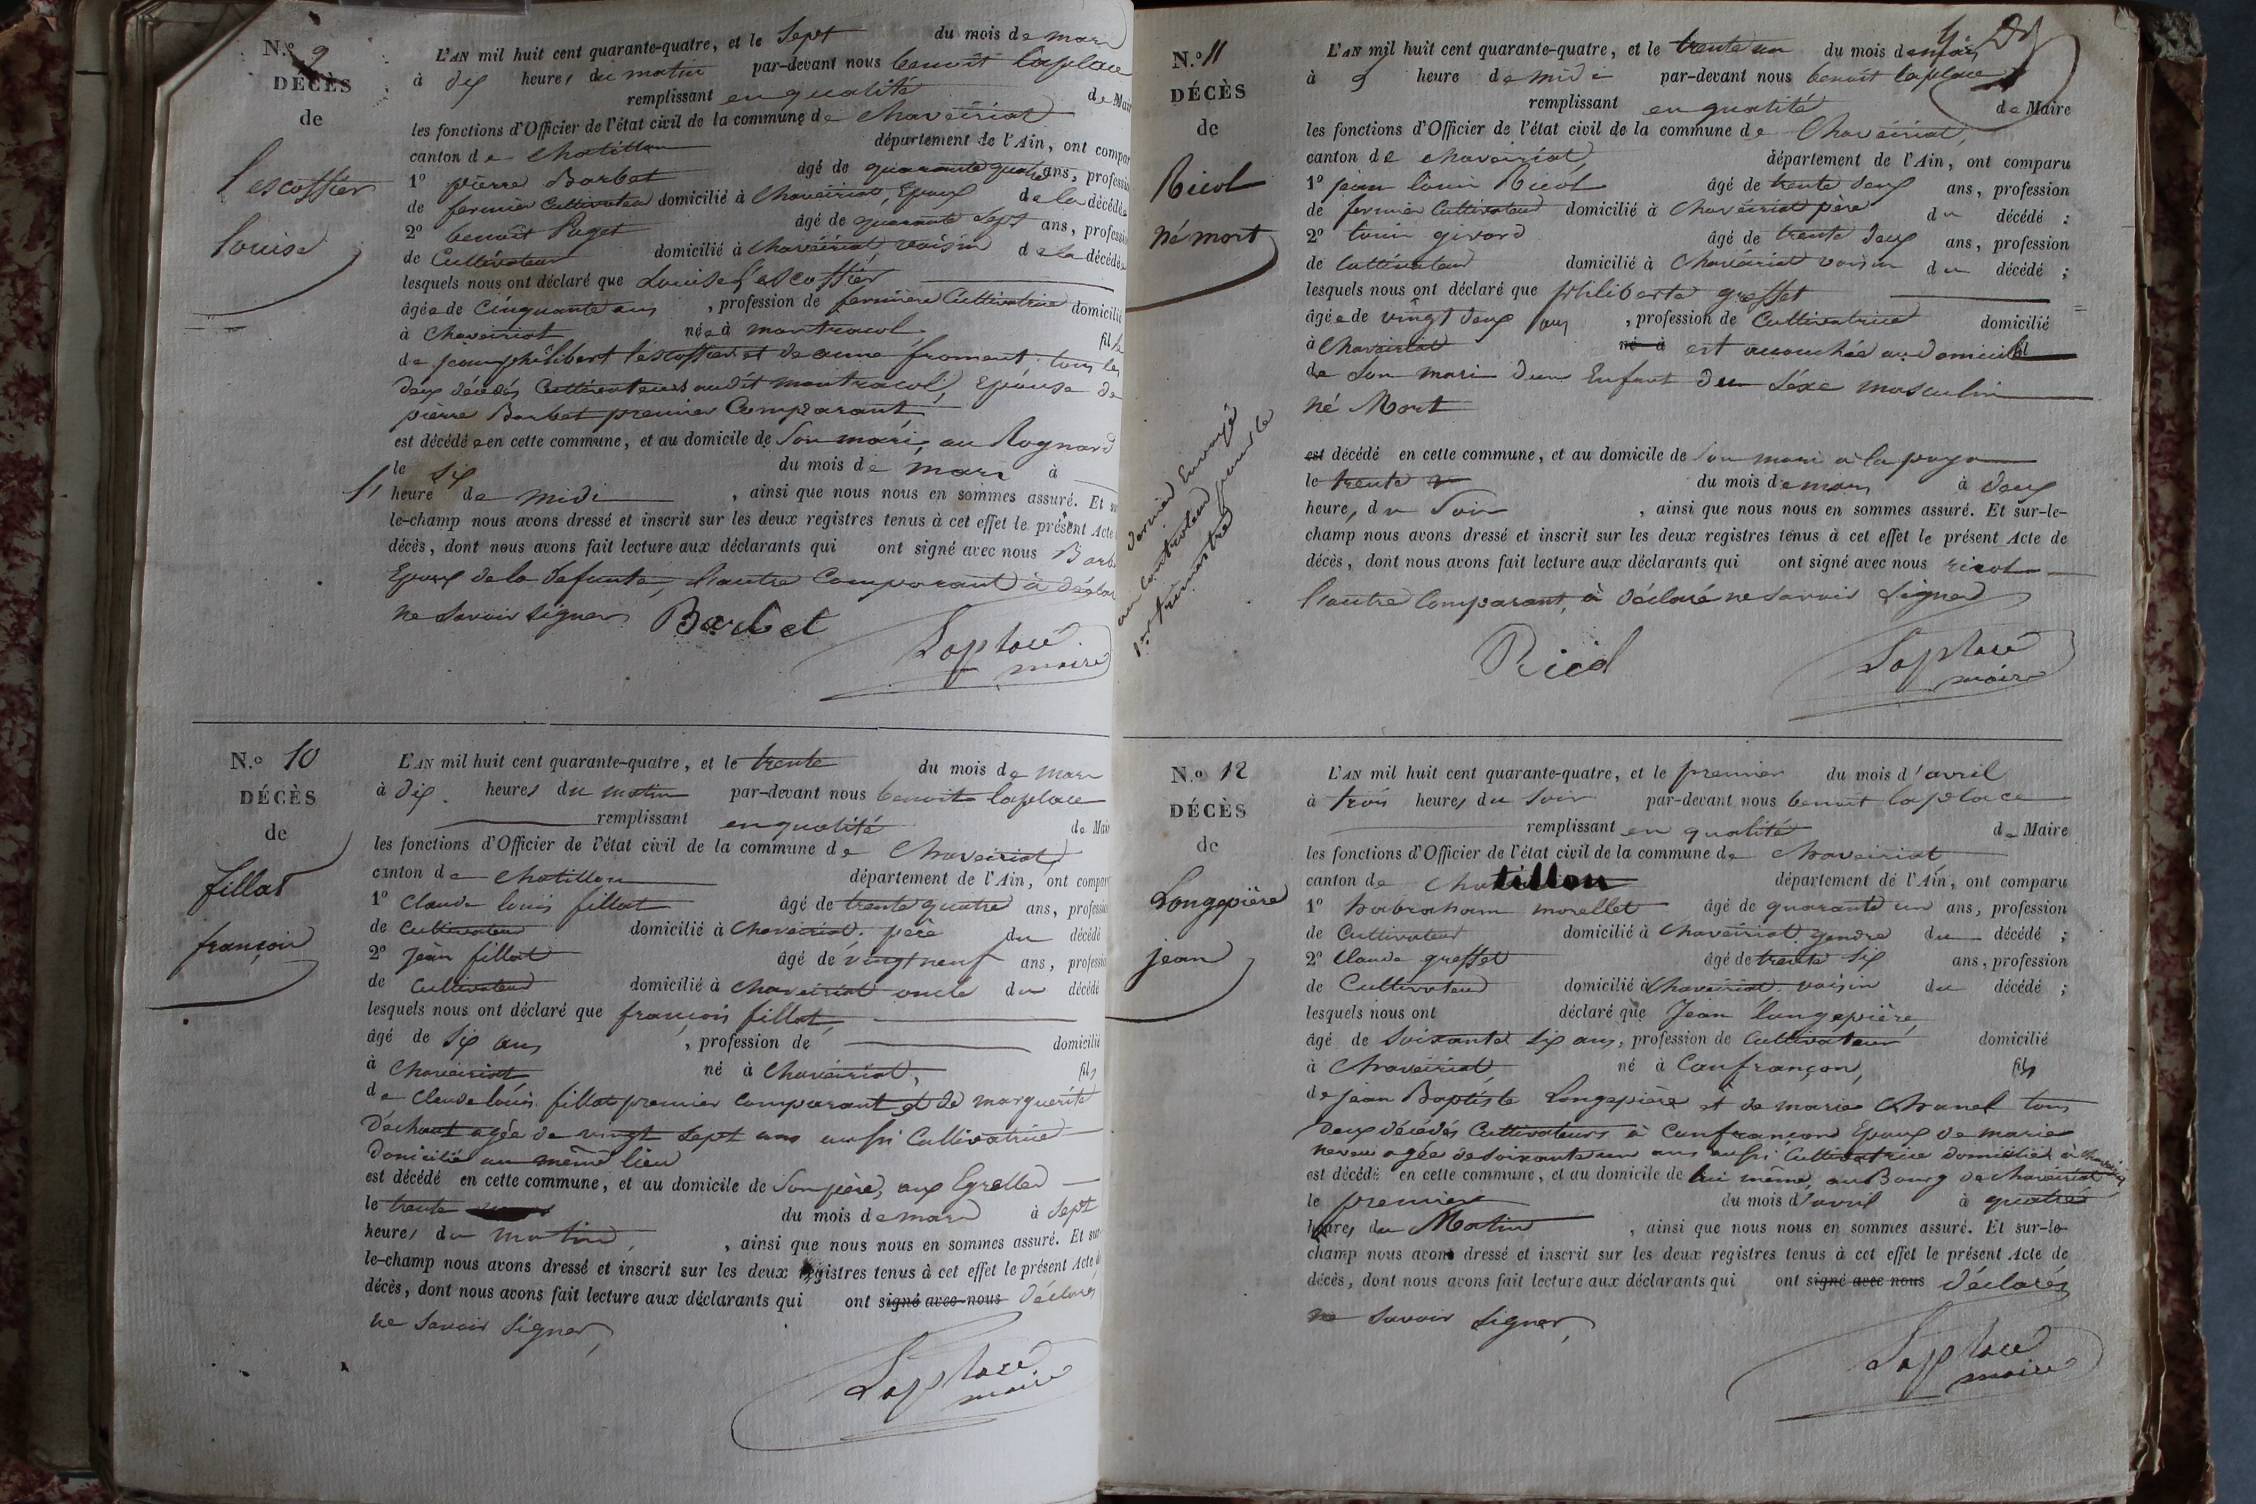 N.o 9
DÉCÈS
de
Lescoffier
Louise
L'AN mil huit cent quarante-quatre, et le Sept du mois de mars
à dix heures du matin par-devant nous benoit laplace
remplissant en qualité de Mair
les fonctions d'Officier de l'état civil de la commune de Chaveiriat
canton de chatillon département de l'Ain, ont compar
1o pierre Barbet âgé de quarante quatre ans, professi
de fermier Cultivateur domicilié à Chaveiriat, Epoux de la décédée
2o benoit Puget âgé de quarante sept ans, professi
de Cultivateur domicilié à Chaveiriat voisin de la décédée
lesquels nous ont déclaré que Louise Lescoffier
âgée de Cinquante ans, profession de fermière Cultivatrice domicilié
à Chaveiriat née à montracol fille
de jean philibert lescoffier et de anne froment tous les
deux décédés Cultivateurs audit montracol, Epouse de
pierre Barbet premier Comparant
est décédée en cette commune, et au domicile de Son mari, au Rognard
le six du mois de mars à
11 heure de midi, ainsi que nous nous en sommes assuré. Et su
le-champ nous avons dressé et inscrit sur les deux registres tenus à cet effet le présent Acte
décès, dont nous avons fait lecture aux déclarants qui ont signé avec nous Barb
Epoux de la defunte, l'autre Comparant à déclar
ne savoir signer Barbet
Laplace
maire
N.o 10
DÉCÈS
de
fillat
françois
L'AN mil huit cent quarante-quatre, et le trente du mois de mars
à dix heures du matin par-devant nous benoit laplace
remplissant en qualité de Mair
les fonctions d'Officier de l'état civil de la commune de Chaveiriat
canton de chatillon département de l'Ain, ont compar
1o Claude louis fillat âgé de trente quatre ans, professi
de Cultivateur domicilié à Chaveiriat, père du décédé
2o Jean fillat âgé de vingt neuf ans, professi
de Cultivateur domicilié à Chaveiriat oncle du décédé
lesquels nous ont déclaré que françois fillat,
âgé de Six ans, profession de domicilié
à Chaveiriat né à Chaveiriat, fils
de Claude louis fillat premier comparant et de marguerite
Dechaut agée de vingt sept ans aussi Cultivatrice
domicilié au même lieu
est décédé en cette commune, et au domicile de Son père, aux Egrelles
le trente du mois de mars à sept
heures du matin, ainsi que nous nous en sommes assuré. Et sur
le-champ nous avons dressé et inscrit sur les deux registres tenus à cet effet le présent Acte d
décès, dont nous avons fait lecture aux déclarants qui ont signé avec nous déclarés
ne savoir signer,
Laplace
maire
N.o 11
DÉCÈS
de
Ricol
né mort
L'AN mil huit cent quarante-quatre, et le trente un du mois de mars
à heure de midi par-devant nous benoit laplace
remplissant en qualité de Maire
les fonctions d'Officier de l'état civil de la commune de Chaveiriat,
canton de chaveiriat, département de l'Ain, ont comparu
1o jean louis Ricol âgé de trente deux ans, profession
de fermier Cultivateur domicilié à Chaveiriat père du décédé ;
2o louis girard âgé de trente deux ans, profession
de Cultivateur domicilié à Chaveiriat voisin du décédé ;
lesquels nous ont déclaré que philiberte greffet
âgée de vingt deux ans, profession de Cultivatrice domicilié
à Chaveiriat né à est accouchée au domicile fil
de Son mari d'un Enfant du Séxe masculin
né Mort
est décédé en cette commune, et au domicile de Son mari à la
le trente un du mois de mars à deux
heure, du Soir, ainsi que nous nous en sommes assuré. Et sur-le-
champ nous avons dressé et inscrit sur les deux registres tenus à cet effet le présent Acte de
décès, dont nous avons fait lecture aux déclarants qui ont signé avec nous ricol
l'autre Comparant, à déclaré ne savoir Signer
Ricol
Laplace
maire
dernier Envoyé
au Controleur pour le
1er trimestre
N.o 12
DÉCÈS
de
Longepierre
jean
L'AN mil huit cent quarante-quatre, et le premier du mois d'avril
à trois heures du Soir par-devant nous benoit laplace
remplissant en qualité de Maire
les fonctions d'Officier de l'état civil de la commune de Chaveiriat
canton de chatillon département de l'Ain, ont comparu
1o habraham morellet âgé de quarante un ans, profession
de Cultivateur domicilié à Chaveiriat gendre du décédé ;
2o Claude greffet âgé de trente six ans, profession
de Cultivateur domicilié à Chaveiriat voisin du décédé ;
lesquels nous ont déclaré que Jean Longepierre,
âgé de Soixante Six ans, profession de Cultivateur domicilié
à Chaveiriat né à Confrançon, fils
de jean Baptiste Longepierre et de marie Chanel tous
deux décédés Cultivateurs à Confrançon Epoux de marie
neveu agée de soixante un ans aussi Cultivatrice domicilié à Chaveiriat
est décédé en cette commune, et au domicile de lui même, au Bourg de chaveiriat
le premier du mois d'avril à quatre
heures du Matin, ainsi que nous nous en sommes assuré. Et sur-le-
champ nous avons dressé et inscrit sur les deux registres tenus à cet effet le présent Acte de
décès, dont nous avons fait lecture aux déclarants qui ont signé avec nous déclarés
ne savoir signer,
Laplace
maire